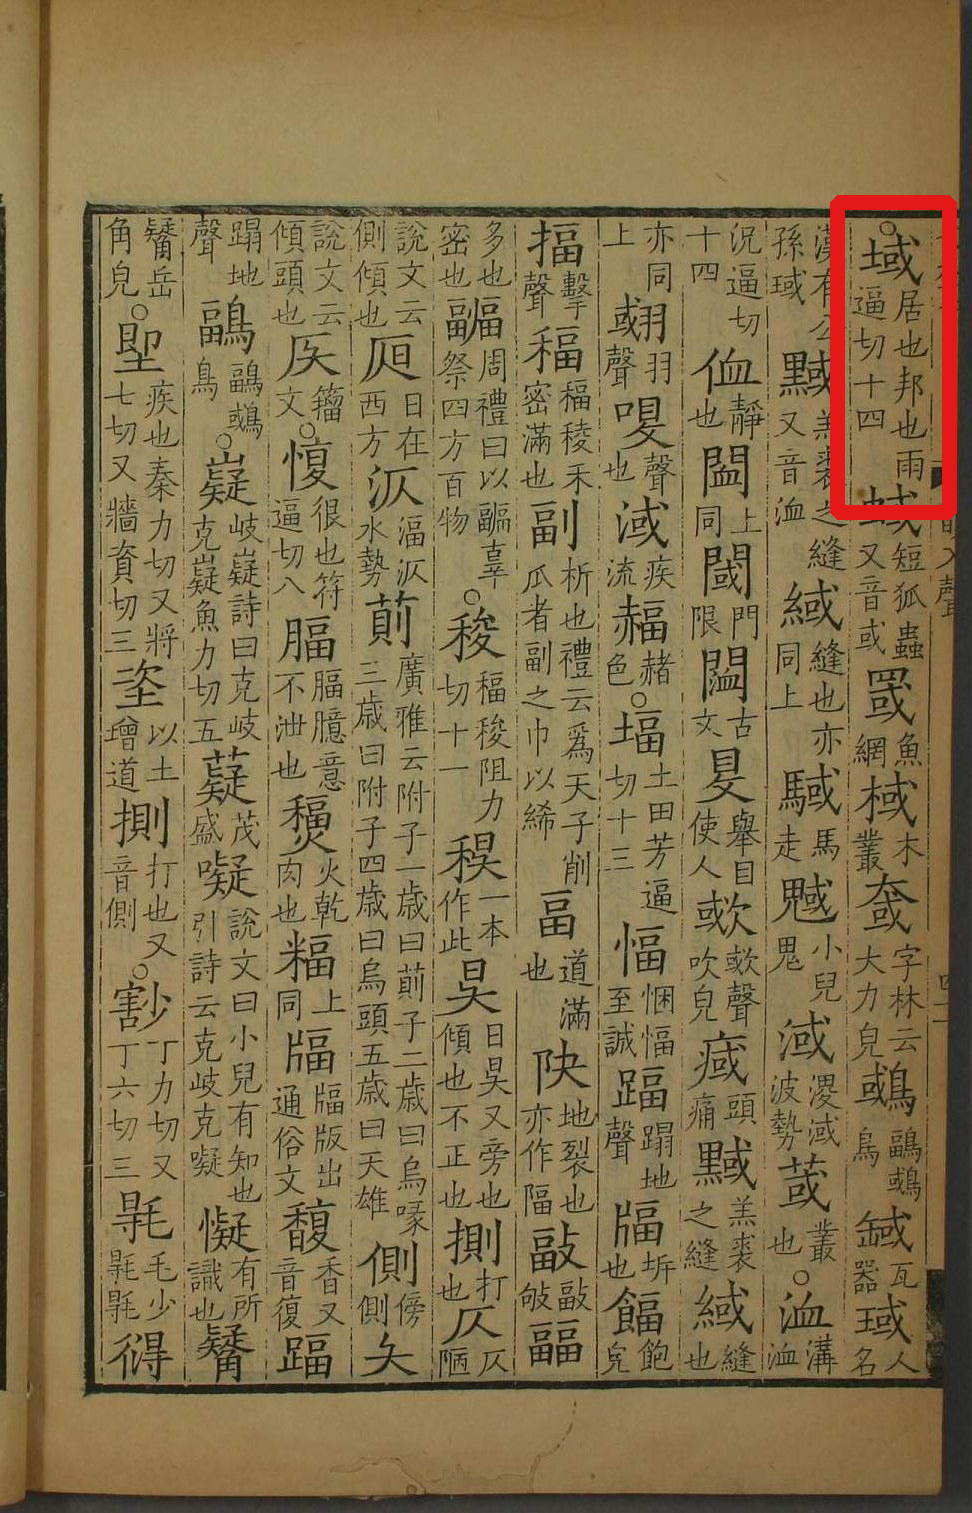 ○域居也邦也雨逼切十四蜮短狐蟲又音或罭魚網棫木叢㚜字林云大力皃䳼鶝䳼鳥㽣瓦器琙人名
漢有公孫琙黬羔裘之縫又音洫緎縫也亦同上馘馬走魊小兒鬼淢溭淢波勢𦳋叢也○洫溝洫
況逼切十四侐靜也閾上同閾門限闔古文𥄎舉目使人㰲㰲聲吹皃㽣頭痛黬羔裘之縫緎縫也
亦同上翽羽聲嗅聲也淢疾流𧹞赭色○堛土田芳逼切十三愊悃愊至誠踾蹋地聲疈坼也餾飽皃
揊擊聲稫稫稜禾密滿也副析也禮云爲天子削瓜者副之巾以絺畐道滿也㽬地裂也亦作隔㪤㪤㪏疈
多也密也䮠周禮曰以疈辜祭四方百物○稄稫稄阻力切十一稷一本作此昃日昃又旁也傾也不正也揤打也仄仄陋
說文云側傾也𠩺日在西方汳湢汳水勢萴廣雅云附子一歲曰萴子二歲曰烏喙三歲曰附子四歲曰烏頭五歲曰天雄側傍側夨
說文云傾頭也㑵籀文○愎很也符逼切八腷腷臆意不泄也稪火乾肉也糒上同楅楅版出通俗文馥香又音復踾
蹋地聲鶝鶝䳼鳥○嶷岐嶷詩曰克岐克嶷魚力切五薿茂盛㘈說文曰小兒有知也引詩云克岐克㘈懝有所識也觺
觺岳角皃○堲疾也秦力切又將七切又牆資切三垐以土增道揤打也又音側○㔍丁力切又丁六切三㲝毛少㲝㲝得